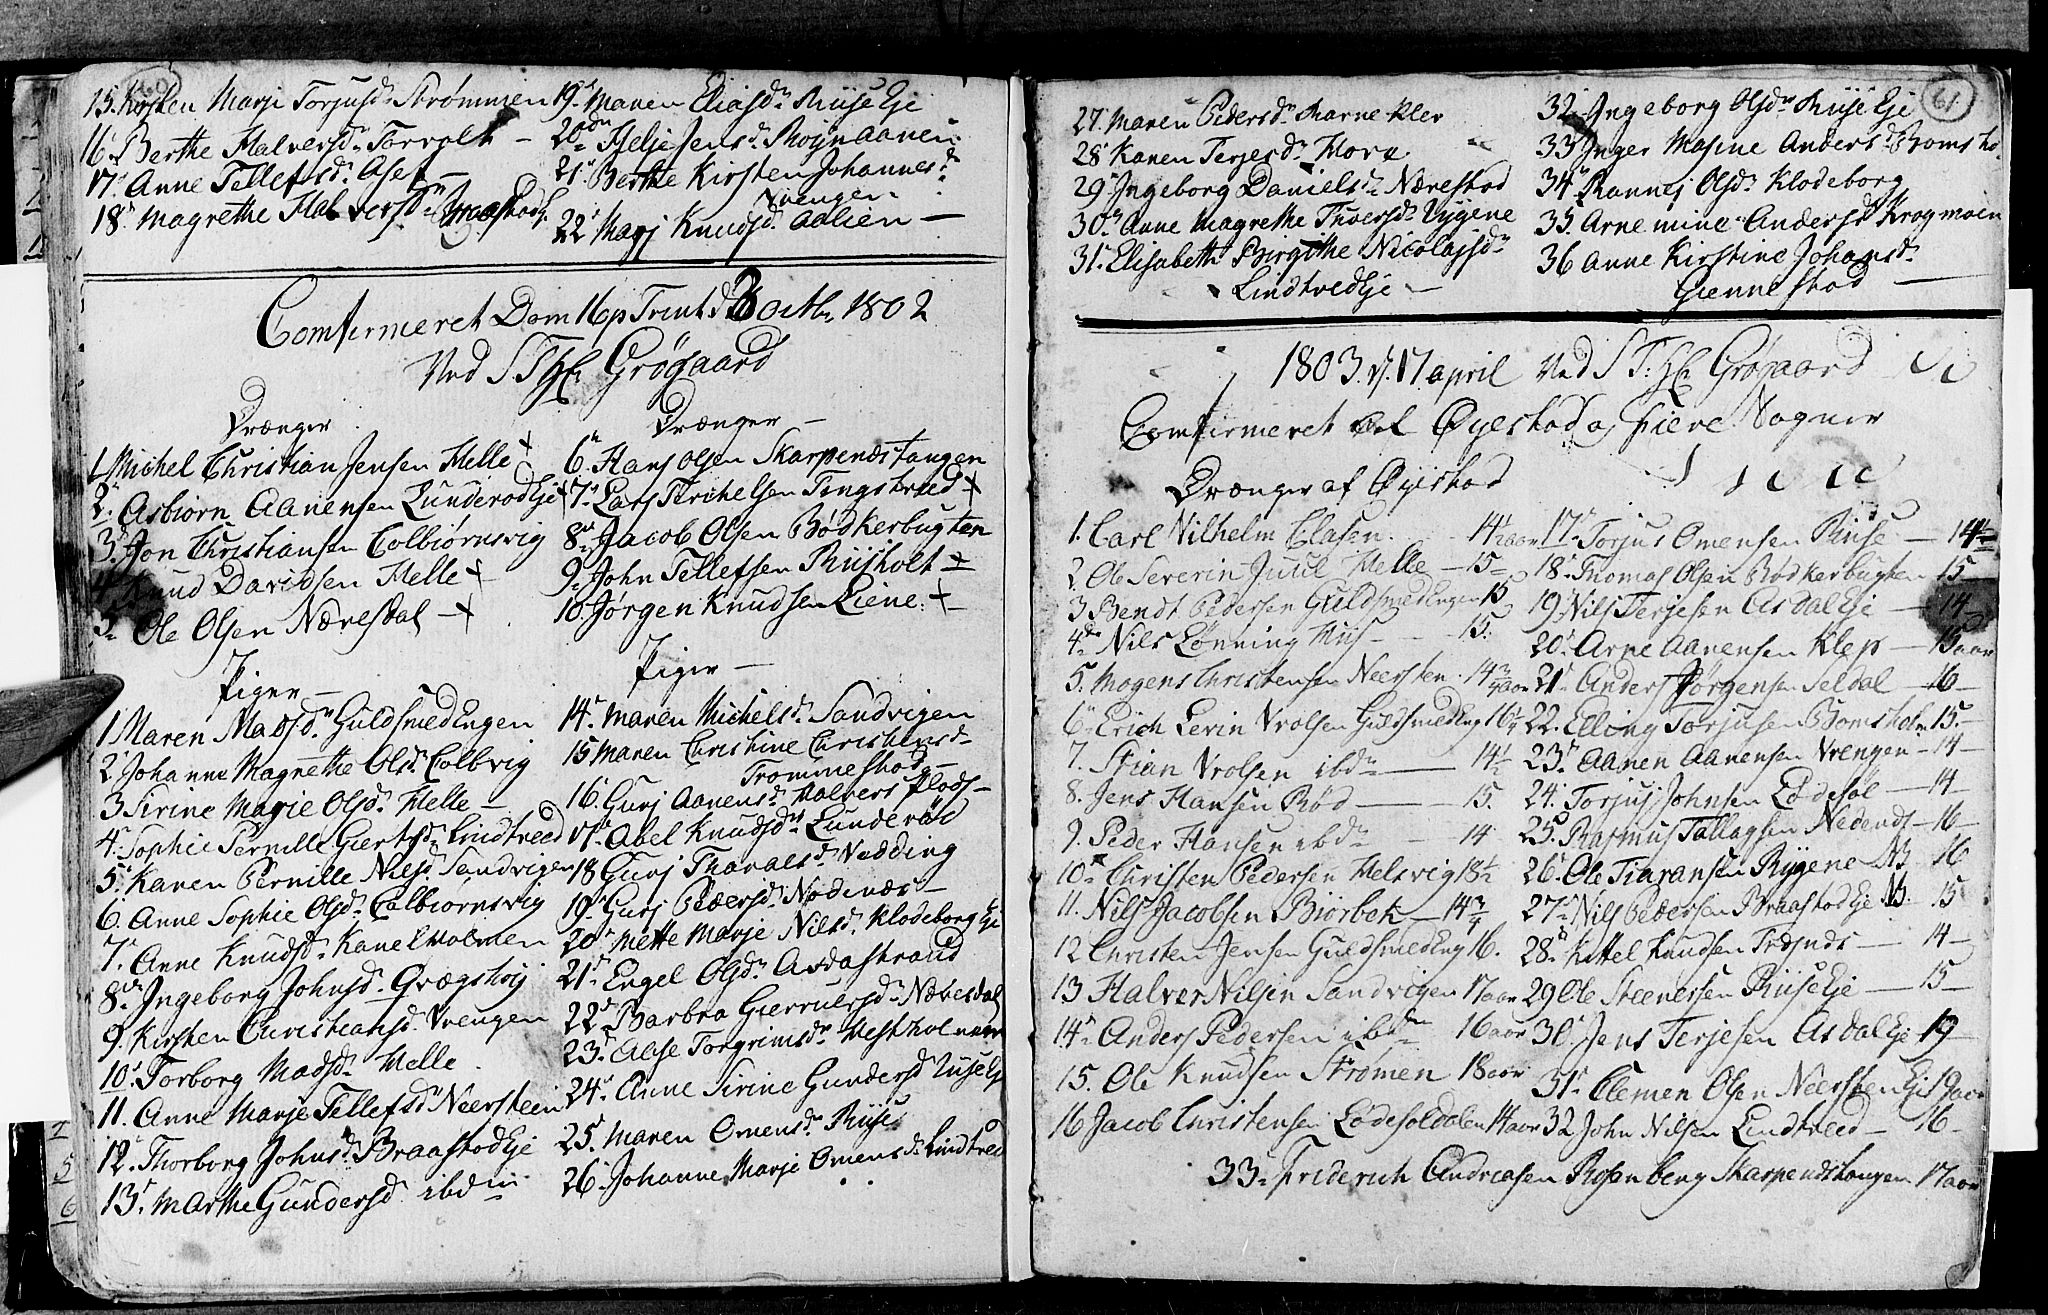 60
15. Kirsten Marje Torjusd. Strømmen
16. Berthe Halversd. Torvolt –
17. Anne Tellefsd. Aset –
18. Magrethe Halversd. Braastod
19. Maren Eliasd. Riise Eje
20. Helje Jensd. Røynaanen
21. Berthe Kirsten Johannesd.
Vrengen
22 Marj Knudsd. Aalien –
Comfirmeret Dom 16 p Trinit d 3 octb. 1802
Ved S. T. Hr Grøgaard
Drænger
1. Michel Christian Jensen Helle +
2. Asbiorn Aanensen Lunderod Eje +
3. Jon Christiansen Colbiørnsvig
4. Knud Davidsen Helle +
5. Ole Olsen Næresdal +
Drænger –
6. Hans Olsen Skarpenæstangen
7. Lars Terchelsen Tingstveed +
8. Jacob Olsen Bødkerbugten
9. John Tellefsen Riisholt +
10. Jørgen Knudsen Liene +
Piger –
1 Maren Madsd. Guldsmed Engen
2. Johanne Magrethe Olsd. Colbvig
3 Sirine Marie Olsd. Helle –
4. Sophie Pernille Giertsd. Lindtveed
5. Karen Pernille Nielsd. Sandvigen
6. Anne Sophie Olsd. Colbiornsvig
7. Anne Knudsd. Kanelholmen
8. Ingeborg Johnsd. Grægshøj
9. Kirsten Christiansd. Vrengen
10. Torborg Madsd. Helle
11. Anne Marje Tellefsd. Neersteen
12. Thorborg Johnsd. Braastod Eje
13. Marthe Gundersd. ibdm
Piger –
14. Maren Michelsd. Sandvigen
15 Maren Christine Christensd.
Trommestad –
16. Gurj Aanensd. Halvers Plads –
17. Abel Knudsd. Lunderød
18 Gurj Tharaldsd. Nedding
19. Gurj Pedersd. Nodenæs –
20. Mette Marje Nilsd. Klodeborg Eje
21. Engel Olsd. Asdastrand
22. Barbra Gierruersd. Næresdal
23. Alise Torgrimsd. Vestholmen
24. Anne Sirine Gundersd.
25. Maren Omensd. Riise
26. Johanne Marje Omensd. Lindtved
61
27. Maren Pedersd. Marnekler
28. Karen Terjesd. Hove
29. Ingeborg Danielsd. Nærestad
30. Anne Magrethe Thorsd. Rygene
31. Elisabeth Birgithe Nicolajsd.
Lindtved Eje –
32. Ingeborg Olsd. Riise Eje
33 Inger Masine Andersd. Bomsho.
34. Rannej Olsd. Klodeborg
35. Arnemine Andersd. Kragmoen
36 Anne Kirstine Johansd.
Giennestad –
1803. d. 17 april Ved S. T. Hr Grøgaard
Comfirmeret Øyestad og Fiere Sogner
Drænger af Øyestad
1. Carl Vilhelm Clasen 14½ aar
2. Ole Severin Juul Helle – 15
3 Bendt Pedersen Guldsmed Engen 15
4. Nils Lønning Huus – 15.
5. Mogens Christensen Neersten 14¾ aar
6. Erich Levin Vrolsen Guldsmed Eng 16½
7. Stian Vrolsen ibdm – 14½
8. Jens Hansen Rød – 15.
9. Peder Hansen ibdm – 14
10. Christen Pedersen Helsvig 18½
11. Nils Jacobsen Biorbek – 14¾
12 Christen Jensen Guldsmed Eng 16.
13 Halver Nilsen Sandvigen 17 aar
14. Anders Pedersen ibdm 16 aar
15. Ole Knudsen Strømen 18 aar
16 Jacob Christensen Lødesoldalen 14 aar
17. Torjus Omensen Riise – 14½
18. Thomas Olsen Bødkerbugten 15
19. Nils Terjesen Asdal Eje – 14
20. Arne Aanensen Klep – 15 aar
21. Anders Jørgensen Seldal – 16 –
22. Elling Torjusen Bomsholm 15. –
23. Aanen Aanensen Vrengen – 14 –
24. Torjus Johnsen Lødesol – 14 –
25. Rasmus Tallagsen Nedenes – 16 –
26. Ole Rygene NB – 16
27. Nils Pedersen Braastad Eje NB. 15
28. Kittel Knudsen – 14 –
29 Ole Steenersen Riise Eje – 15 –
30. Jens Terjesen Asdal Eje 19
31. Clemen Olsen Neersten Eje 19 aar
32 John Nilsen Lindtveed – 16 –
33. Friderich Andreasen Rosenberg Skarpenæstangen 17 aar